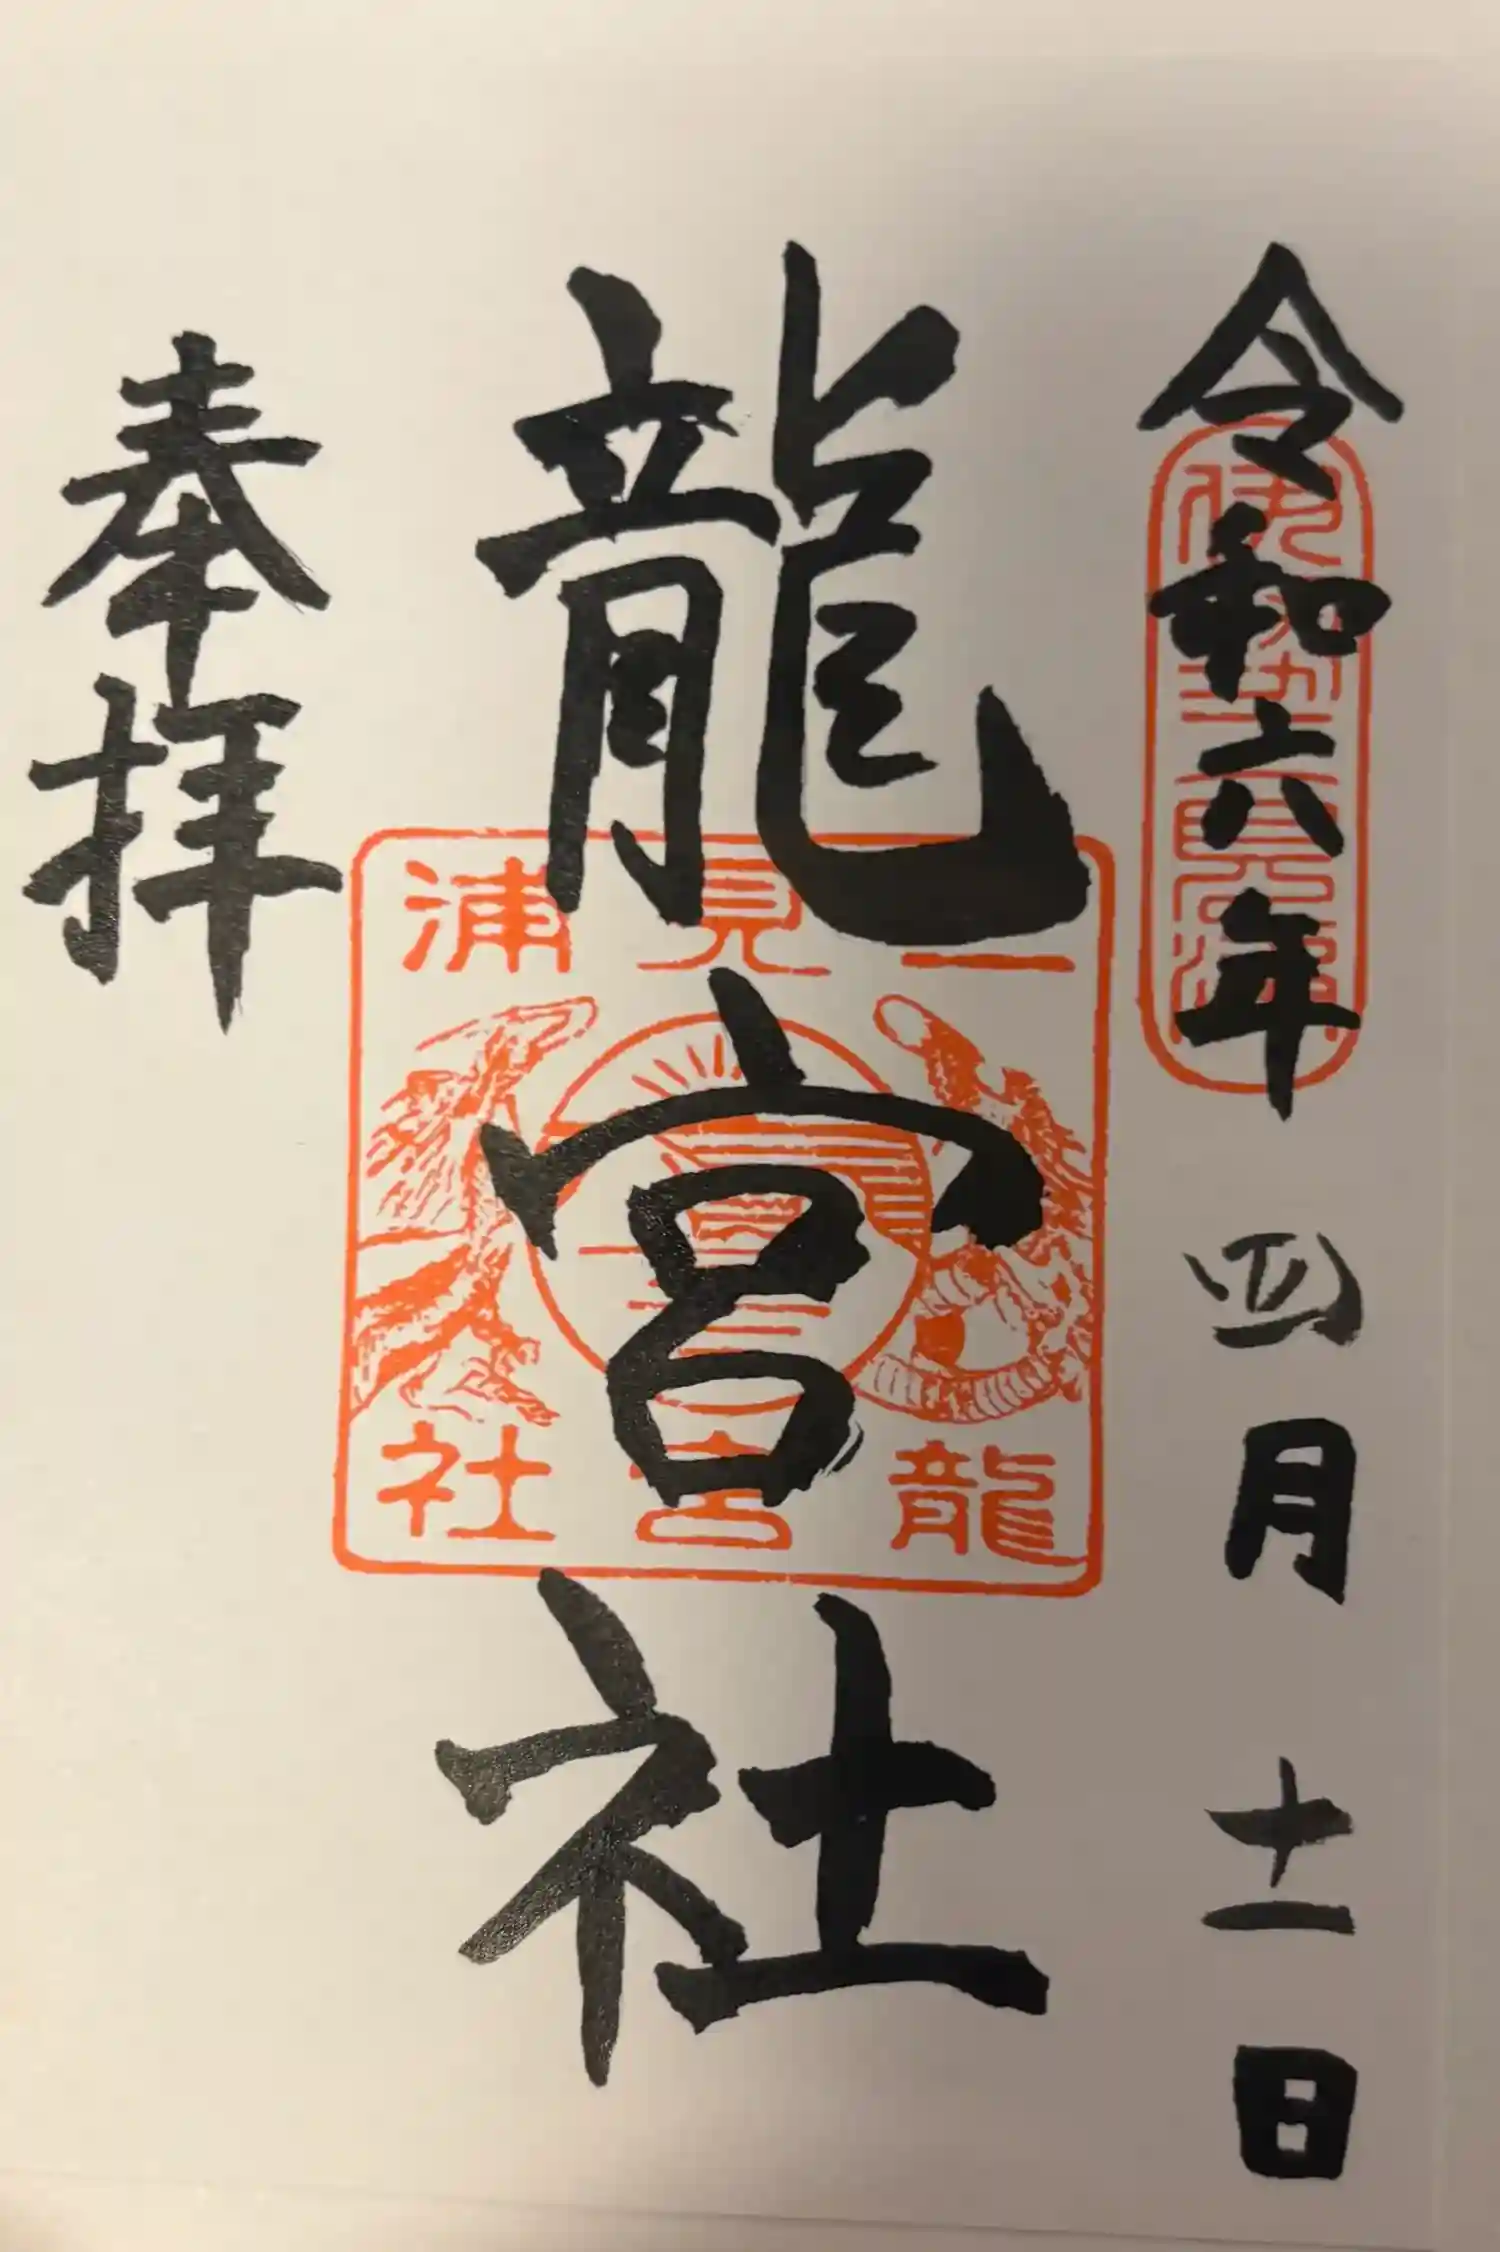 令和六年 四月 十一日
龍宮社
奉拝
二見浦
龍宮社